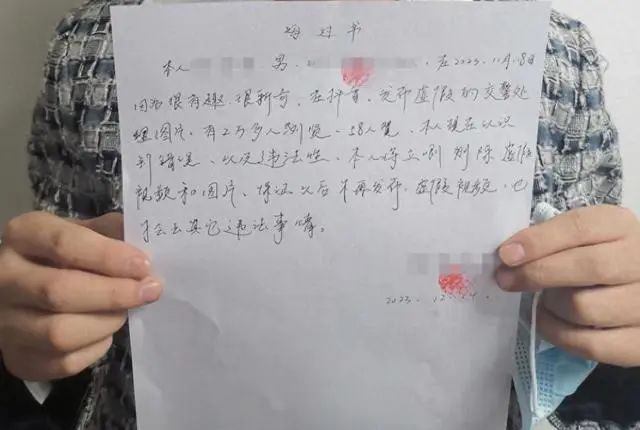 悔过书
本人 男, 在2023.11月18日
因为很有趣.很新奇、在抖音、发布虚假的交警处
理图片、有2万多人浏览、人赞、本人现在认识
到错误、以及违法性、本人将立刻删除虚假
视频和图片、保证以后不再发布、虚假视频、也
不会去其它违法事情。
2023.